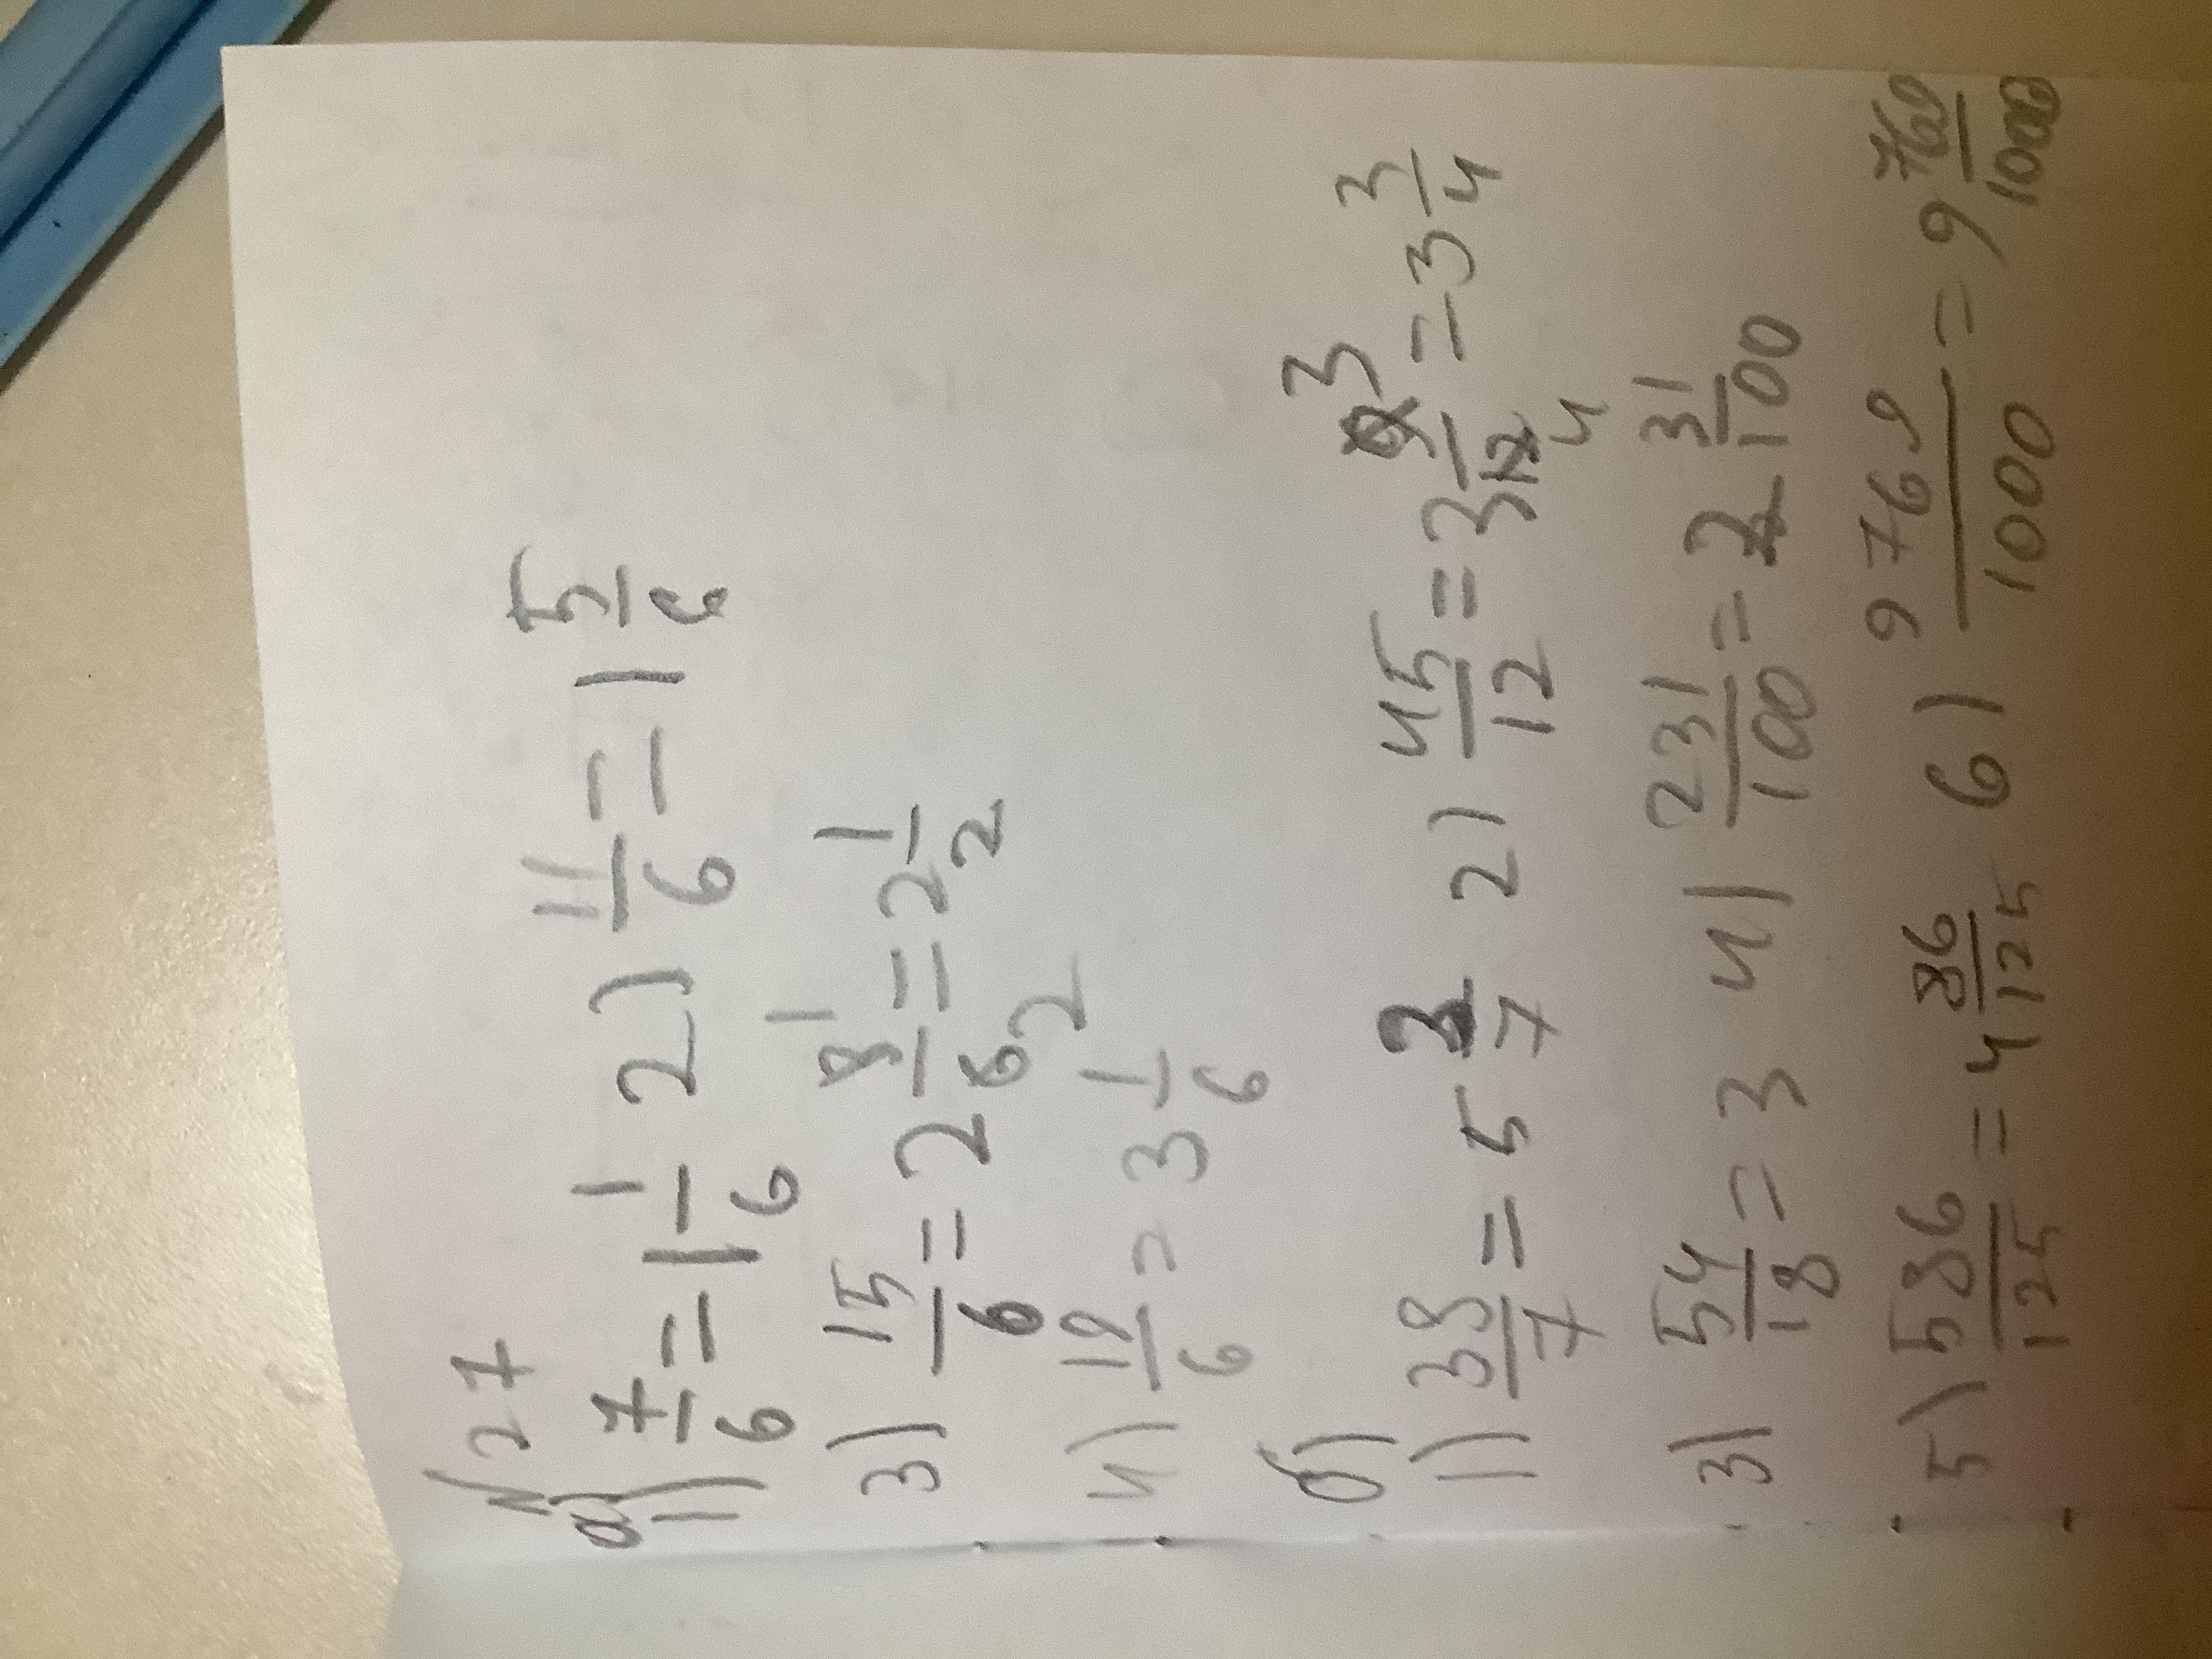 N27
а)
1) 7/6 = 1 1/6 2) 11/6 = 1 5/6
3) 15/6 = 2 3/6 = 2 1/2
4) 19/6 = 3 1/6
б)
1) 38/7 = 5 3/7 2) 45/12 = 3 9/12 = 3 3/4
3) 54/18 = 3 4) 231/100 = 2 31/100
5) 586/125 = 4 86/125 6) 9769/1000 = 9 769/1000